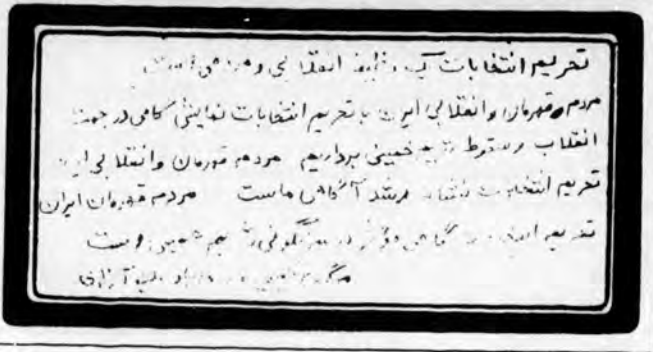 تحریم انتخابات یک وظیفه انقلابی و مردمی است
مردم قهرمان و انقلابی ایران با تحریم انتخابات نمایشی گامی در جهت
انقلاب و سقوط رژیم خمینی برداریم مردم قهرمان و انقلابی ایران
تحریم انتخابات نشانه رشد آگاهی ماست مردم قهرمان ایران
تحریم انتخابات گامی مؤثر در سرنگونی رژیم خمینی است
مرگ بر خمینی زنده باد آزادی